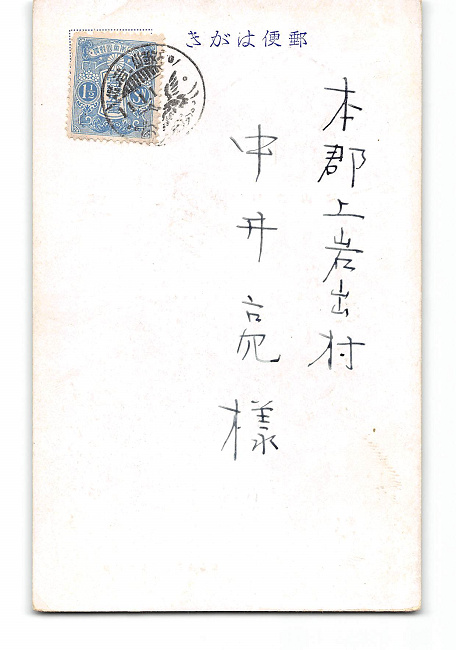 きがは便郵
本郡上岩出村
中井亮様
1½